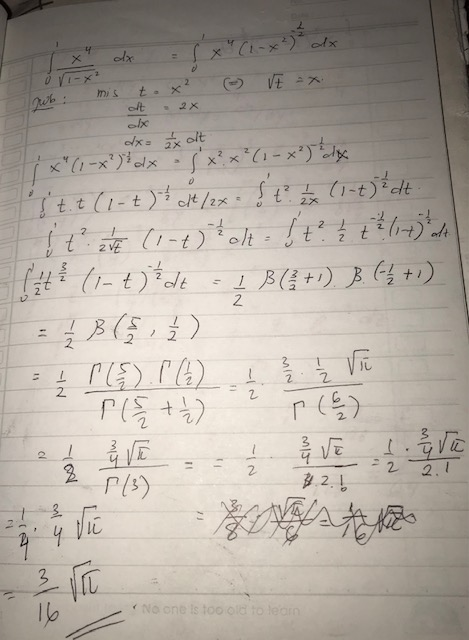 ∫₀¹ x⁴/√(1-x²) dx = ∫₀¹ x⁴ (1-x²)^(-1/2) dx
jwb : mis t = x² (=) √t = x
dt/dx = 2x
dx = 1/2x dt
∫₀¹ x⁴ (1-x²)^(-1/2) dx = ∫₀¹ x². x² (1-x²)^(-1/2) dx
∫₀¹ t. t (1-t)^(-1/2) dt/2x = ∫₀¹ t². 1/2x (1-t)^(-1/2) dt.
∫₀¹ t². 1/2√t (1-t)^(-1/2) dt = ∫₀¹ t². 1/2 t^(-1/2). (1-t)^(-1/2) dt
∫₀¹ 1/2 t^(3/2) (1-t)^(-1/2) dt = 1/2 β(3/2 +1). β. (-1/2 +1)
= 1/2 β(5/2, 1/2)
= 1/2 Γ(5/2). Γ(1/2) / Γ(5/2 + 1/2) = 1/2. 3/2. 1/2 √π / Γ(6/2)
= 1/2 3/4 √π / Γ(3) = = 1/2. 3/4 √π / 2.1 = 1/2. 3/4 √π / 2.1
= 1/4. 3/4 √π =
= 3/16 √π
No one is too old to learn